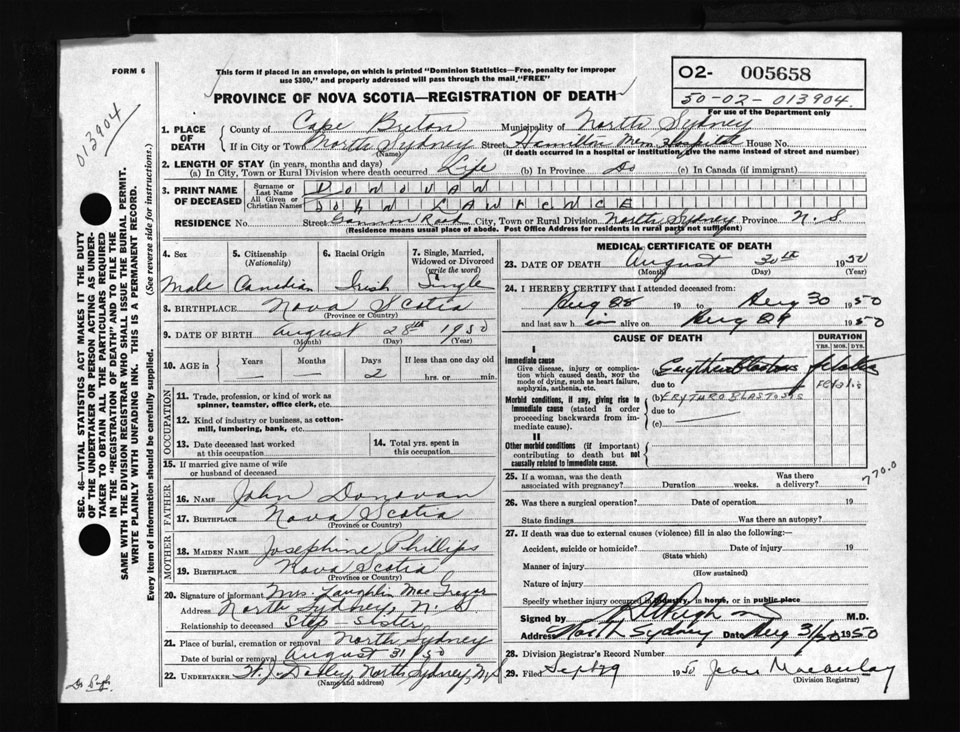 FORM 6
This form if placed in an envelope, on which is printed "Dominion Statistics—Free, penalty for improper
use $300," and properly addressed will pass through the mail "FREE"
O2- 005658
50-02-013904
For use of the Department only
013904
PROVINCE OF NOVA SCOTIA—REGISTRATION OF DEATH
1. PLACE OF DEATH
County of Cape Breton Municipality of North Sydney
If in City or Town North Sydney Street Hamilton Mem Hospital House No.
(Name) (If death occurred in a hospital or institution, give the name instead of street and number)
2. LENGTH OF STAY (in years, months and days)
(a) In City, Town or Rural Division where death occurred Life (b) In Province Do (c) In Canada (if immigrant)
3. PRINT NAME OF DECEASED
Surname or Last Name DONOVAN
All Given or Christian Names JOHN LAWRENCE
RESIDENCE No. Street Gannon Road City, Town or Rural Division North Sydney Province N.S
(Residence means usual place of abode. Post Office Address for residents in rural parts not sufficient)
4. Sex
5. Citizenship (Nationality)
6. Racial Origin
7. Single, Married, Widowed or Divorced (write the word)
Male Canadian Irish Single
8. BIRTHPLACE Nova Scotia
(Province or Country)
9. DATE OF BIRTH August 28th 1950
(Month) (Day) (Year)
10. AGE in Years Months Days If less than one day old
— — 2 hrs. or min.
OCCUPATION
11. Trade, profession, or kind of work as spinner, teamster, office clerk, etc.
12. Kind of industry or business, as cotton-mill, lumbering, bank, etc.
13. Date deceased last worked at this occupation
14. Total yrs. spent in this occupation
15. If married give name of wife or husband of deceased
FATHER
16. NAME John Donovan
17. BIRTHPLACE Nova Scotia
(Province or Country)
MOTHER
18. MAIDEN NAME Josephine Phillips
19. BIRTHPLACE Nova Scotia
(Province or Country)
20. Signature of informant Mrs. Laughlin MacGregor
Address North Sydney, N. S
Relationship to deceased Step-sister
21. Place of burial, cremation or removal North Sydney
Date of burial or removal August 31/50
22. UNDERTAKER North Sydney, N.S
(Name and address)
MEDICAL CERTIFICATE OF DEATH
23. DATE OF DEATH August 30th 1950
(Month) (Day) (Year)
24. I HEREBY CERTIFY that I attended deceased from:
Aug 28 19 to Aug 30 1950
and last saw him alive on Aug 29 1950
CAUSE OF DEATH
DURATION
YRS. MOS. DYS.
I
Immediate cause
Give disease, injury or complication which caused death, NOT the mode of dying, such as heart failure, asphyxia, asthenia, etc.
(a) Erythroblastosis fetalis
due to Fetalis
Morbid conditions, if any, giving rise to immediate cause (stated in order proceeding backwards from immediate cause).
(b) ERYTHROBLASTOSIS
due to
(c)
II
Other morbid conditions (if important) contributing to death but not causally related to immediate cause.
770.0
25. If a woman, was the death associated with pregnancy? Duration weeks. Was there a delivery?
26. Was there a surgical operation? Date of operation 19
State findings Was there an autopsy?
27. If death was due to external causes (violence) fill in also the following:
Accident, suicide or homicide? Date of injury 19
(State which)
Manner of injury
(How sustained)
Nature of injury
Specify whether injury occurred in industry, in home, or in public place
Signed by M.D.
Address North Sydney Date Aug 31/50 1950
28. Division Registrar's Record Number
29. Filed Sept 29 1950 Jean Macaulay
(Division Registrar)
Dr Pugh
SEC. 46—VITAL STATISTICS ACT MAKES IT THE DUTY
OF THE UNDERTAKER OR PERSON ACTING AS UNDER-
TAKER TO OBTAIN ALL THE PARTICULARS REQUIRED
IN THE "REGISTRATION OF DEATH" AND TO FILE THE
SAME WITH THE DIVISION REGISTRAR WHO SHALL ISSUE THE BURIAL PERMIT.
WRITE PLAINLY WITH UNFADING INK. THIS IS A PERMANENT RECORD.
Every item of information should be carefully supplied. (See reverse side for instructions.)